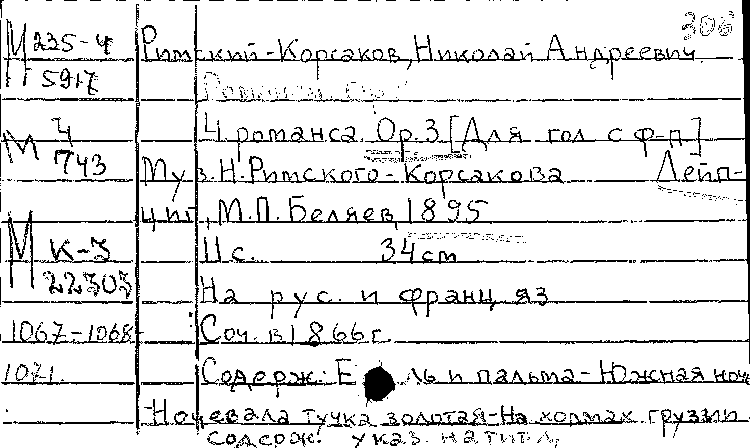 306
М 235-4 Римский-Корсаков, Николай Андреевич
5917
Романсы
4 романса. Op. 3 [Для гол с ф-п]
М 4
743 Муз. Н. Римского-Корсакова Лейп-
циг, М.П. Беляев, 1895
М К-3 11 с. 34 cm
22303 На рус. и франц яз
1067-1068 Соч. в 1866 г.
1071 Содерж: Е ль и пальма - Южная ночь
Ночевала тучка золотая - На холмах грузии -
содерж. указ. на титл,